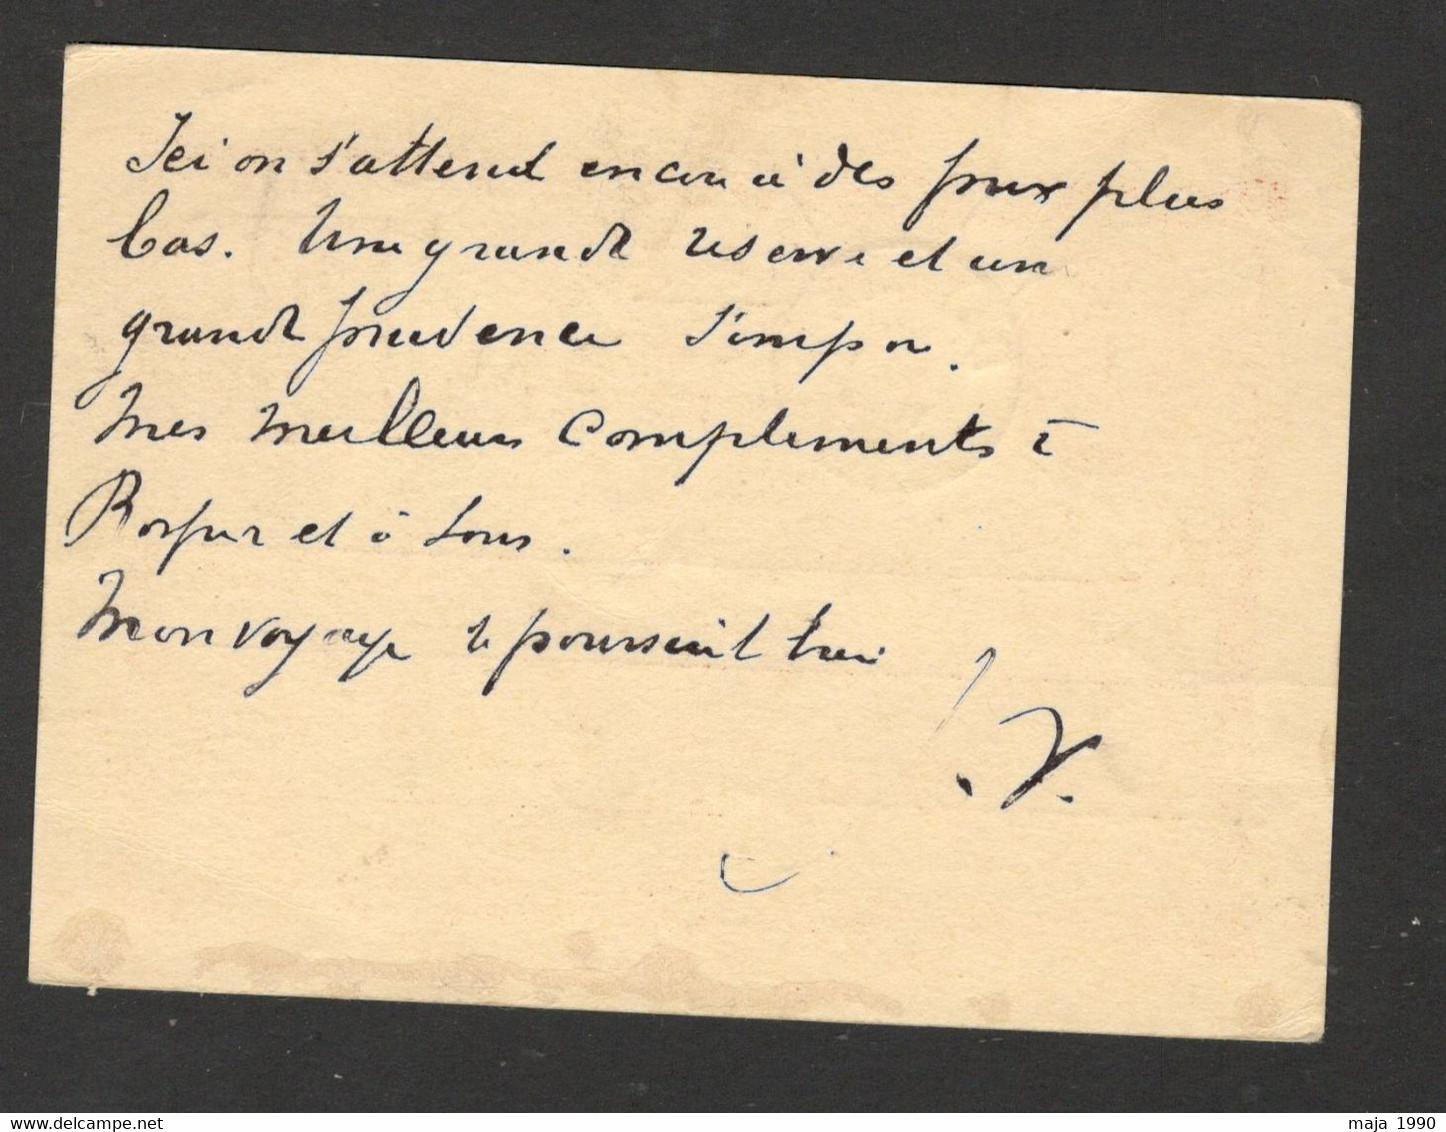 Ici on s'attend encore à des prix plus
bas. Une grande reserve et une
grande prudence s'impose.
Mes meilleurs compliments à
et à tous.
Mon voyage se poursuit
V.
delcampe.net
maja 1990